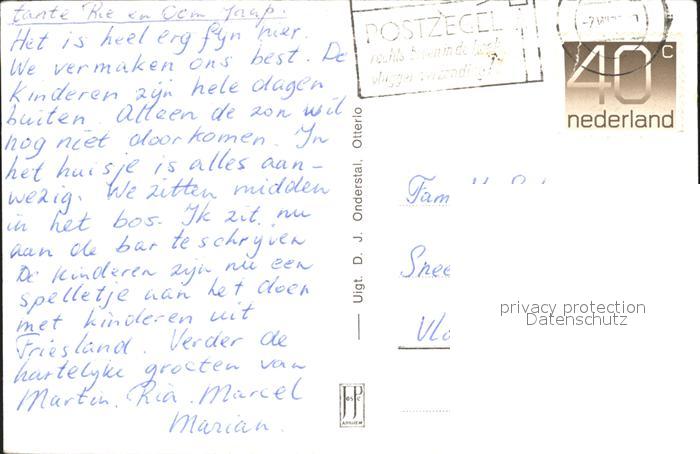 tante Rie en Oom Jaap.
Het is heel erg fijn hier.
We vermaken ons best. De
kinderen zijn hele dagen
buiten. Alleen de zon wil
nog niet doorkomen. In
het huisje is alles aan-
wezig. We zitten midden
in het bos. Ik zit nu
aan de bar te schrijven
De kinderen zijn nu een
spelletje aan het doen
met kinderen uit
Friesland. Verder de
hartelijke groeten van
Martin. Ria. Marcel
Marian.
Uigt. D. J. Onderstal, Otterlo
POSTZEGEL
40 c
nederland
Fam
Snee
Vla
privacy protection
Datenschutz
JP
ARNHEM